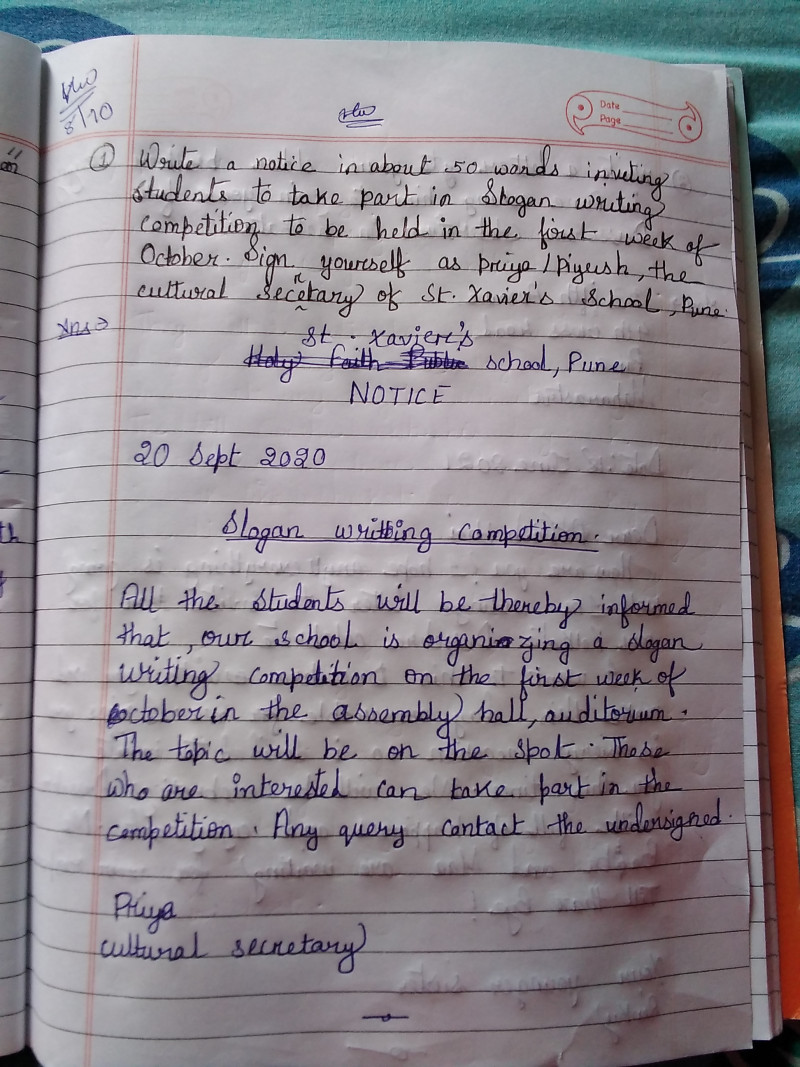 HW
8/10
HW
Date
Page
① Write a notice in about 50 words inviting
students to take part in Slogan writing
competition to be held in the first week of
October. Sign yourself as priya / Piyush, the
cultural secretary of St. Xavier's School, Pune.
Ans →
St. Xavier's
Holy Faith Public school, Pune
NOTICE
20 Sept 2020
Slogan writing Competition.
All the students will be thereby informed
that, our school is organizing a slogan
writing competition on the first week of
october in the assembly hall, auditorium.
The topic will be on the spot. Those
who are interested can take part in the
competition. Any query contact the undersigned.
Priya
cultural secretary